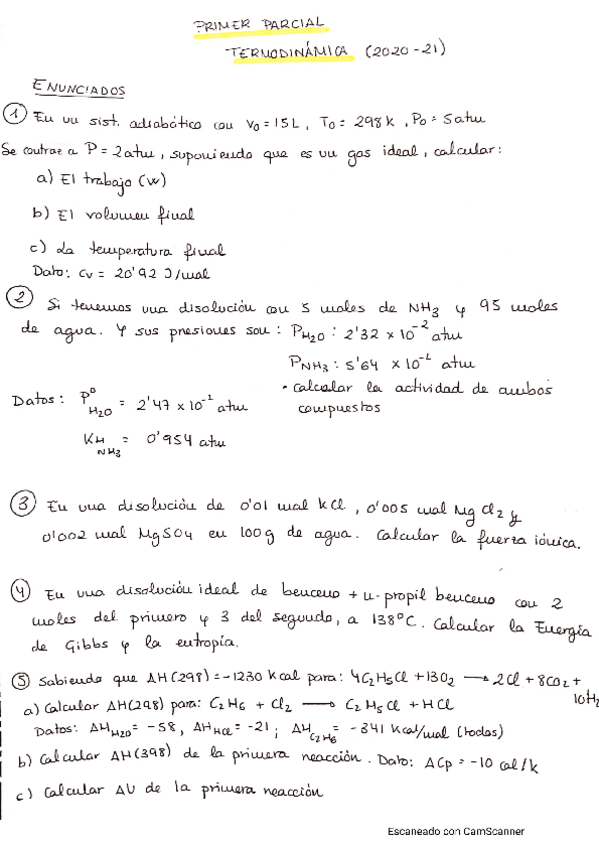 PRIMER PARCIAL
TERMODINÁMICA (2020-21)
ENUNCIADOS
① En un sist. adiabático con V₀ = 15L, T₀ = 298K, P₀ = 5atm
Se contrae a P = 2atm, suponiendo que es un gas ideal, calcular:
a) El trabajo (W)
b) El volumen final
c) La temperatura final
Dato: Cv = 20'92 J/mol
② Si tenemos una disolución con 5 moles de NH₃ y 95 moles
de agua. Y sus presiones son: P_H₂O : 2'32 × 10⁻² atm
P_NH₃ : 5'64 × 10⁻² atm
Datos: P⁰_H₂O = 2'47 × 10⁻² atm
• calcular la actividad de ambos
compuestos
K_H NH₃ = 0'954 atm
③ En una disolución de 0'01 mol KCl, 0'005 mol MgCl₂ y
0'002 mol MgSO₄ en 100g de agua. Calcular la fuerza iónica.
④ En una disolución ideal de benceno + n-propil benceno con 2
moles del primero y 3 del segundo, a 138°C. Calcular la Energía
de Gibbs y la entropía.
⑤ Sabiendo que ΔH(298) = -1230 Kcal para: 4C₂H₅Cl + 13O₂ → 2Cl + 8CO₂ +
10H₂
a) Calcular ΔH(298) para: C₂H₆ + Cl₂ → C₂H₅Cl + HCl
Datos: ΔH_H₂O = -58, ΔH_HCl = -21; ΔH_C₂H₆ = -341 Kcal/mol (todas)
b) Calcular ΔH(398) de la primera reacción. Dato: ΔCp = -10 cal/K
c) Calcular ΔU de la primera reacción
Escaneado con CamScanner